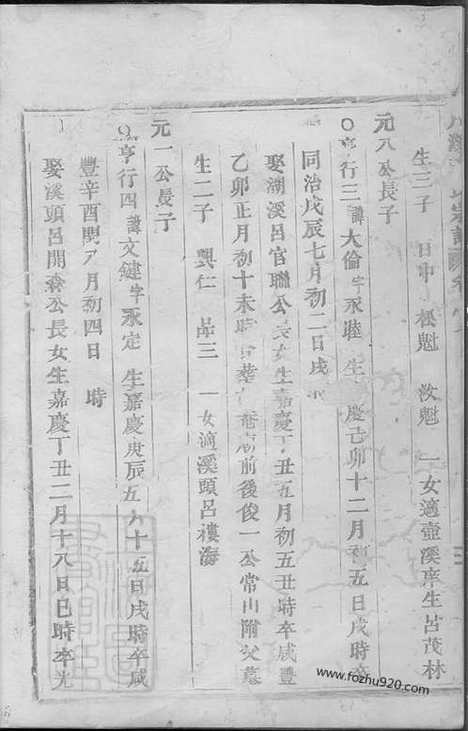 生三子 日中 松魁 汝魁 一女適壺溪庠生呂茂林
元八公長子
亨行三諱大倫字永睦 生 慶己卯十二月初五日戌時卒
同治戊辰七月初二日戌
娶湖溪呂官聯公長女生嘉慶丁丑五月初五丑時卒咸豐
乙卯正月初十未時 葬 前後俊一公常山附父墓
生二子 興仁 品三 一女適溪頭呂樓海
元一公長子
亨行四諱文鍵字永定 生嘉慶庚辰五月十五日戌時卒咸
豐辛酉閏 月初四日 時
娶溪頭呂開森公長女生嘉慶丁丑二月十八日巳時卒光
www.fozhu920.com